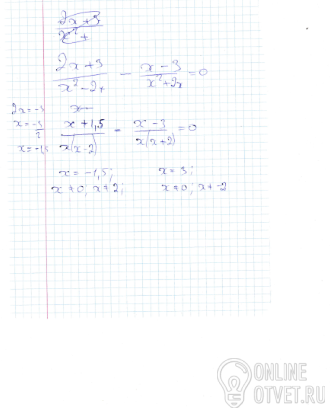 2x+3
x²+
2x+3 / x²-2x - x-3 / x²+2x =0
2x=-3
x=-3/2
x=-1,5
x+1,5 / x(x-2) - x-3 / x(x+2) =0
x=-1,5; x=3;
x≠0; x≠2; x≠0; x≠-2
ONLINE
OTVET.RU